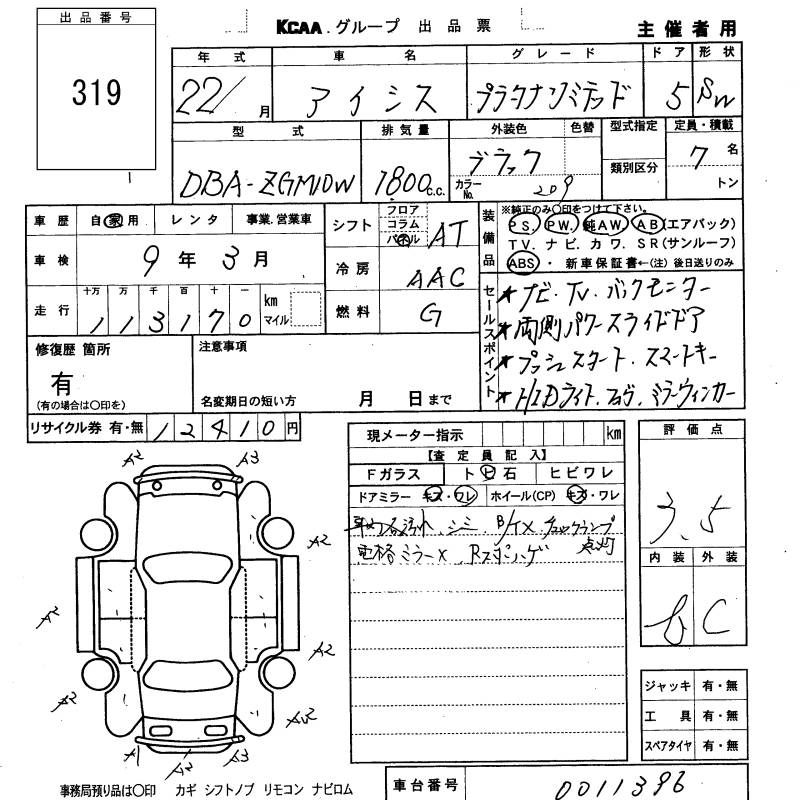 出品番号
319
KCAA.グループ 出品票
主催者用
年式 車名 グレード ドア 形状
22/ 月 アイシス プラタナリミテッド 5 SW
型式 排気量 外装色 色替 型式指定 定員・積載
DBA-ZGM10W 1800c.c. ブラック 7名
カラーNo. 209 類別区分 トン
車歴 自家用 レンタ 事業.営業車
車検 9年 3月
走行 十万 万 千 百 十 一 km マイル
1 1 3 1 7 0
シフト フロア コラム パネル AT
冷房 AAC
燃料 G
装備品 ※純正のみ○印をつけて下さい。
PS. PW. 純AW. AB(エアバック)
TV. ナビ. カワ. SR(サンルーフ)
ABS ・ 新車保証書←(注)後日送りのみ
セールスポイント
★ナビ・TV・バックモニター
★両側パワースライドドア
★プッシュスタート.スマートキー
★HIDライト.フォグ.ミラーウィンカー
修復歴 箇所
有
(有の場合は○印を)
注意事項
名変期日の短い方 月 日まで
リサイクル券 有・無 12410円
現メーター指示 km
【査定員記入】
Fガラス ト ビ 石 ヒビワレ
ドアミラー キズ・ワレ ホイール(CP) キズ・ワレ
シミ B/イメ チェックランプ点灯
電格ミラー× Rスポ
評価点
3.5
内装 外装
C
ジャッキ 有・無
工具 有・無
スペアタイヤ 有・無
A2 A3
A2
A2
A2
A2 AU2
A1 A2 A3
事務局預り品は○印 カギ シフトノブ リモコン ナビロム
車台番号 0011396